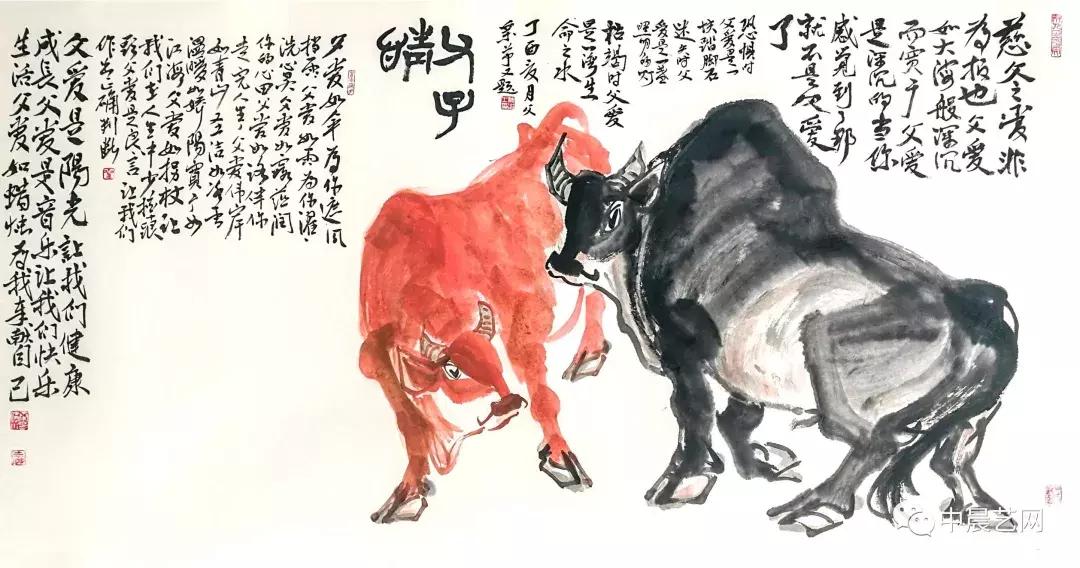 慈父之爱非
为报也父爱
如大海般深沉
而宽广父爱
是深沉的当你
感觉到了那
就不是父爱
了
恐惧时
父爱是一
块踏脚石
迷失时父
爱是一盏
明的灯
枯竭时父爱
是一湾生
命之水
丁酉夏月父
亲节又题
父子情
父爱如伞为你遮风
挡雨父爱如雨为你濯
洗心灵父爱如露滋润
你的心田父爱如路伴你
走完人生父爱伟岸
如青山圣洁如冰雪
温暖如娇陽宽广如
江海父爱如拐杖让
我们在人生中少摔跟
头父爱是良言让我们
作出正确判断
父爱是陽光让我们健康
成长父爱是音乐让我们快乐
生活父爱如蜡烛为我奉献自己
中晨艺网